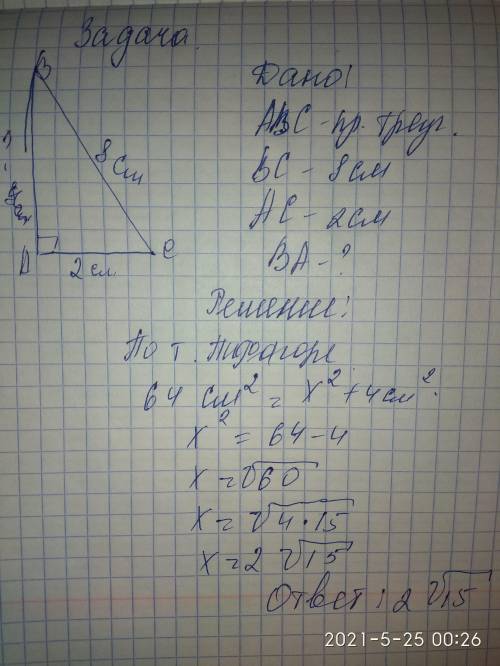 Задача
B
8 см
A
2 см
C
Дано:
ABC - пр. треуг.
BC - 8 см
AC - 2 см
BA - ?
Решение:
По т. Пифагора
64 см² = x² + 4 см²
x² = 64 - 4
x = √60
x = √4·15
x = 2 √15
Ответ: 2 √15
2021-5-25 00:26